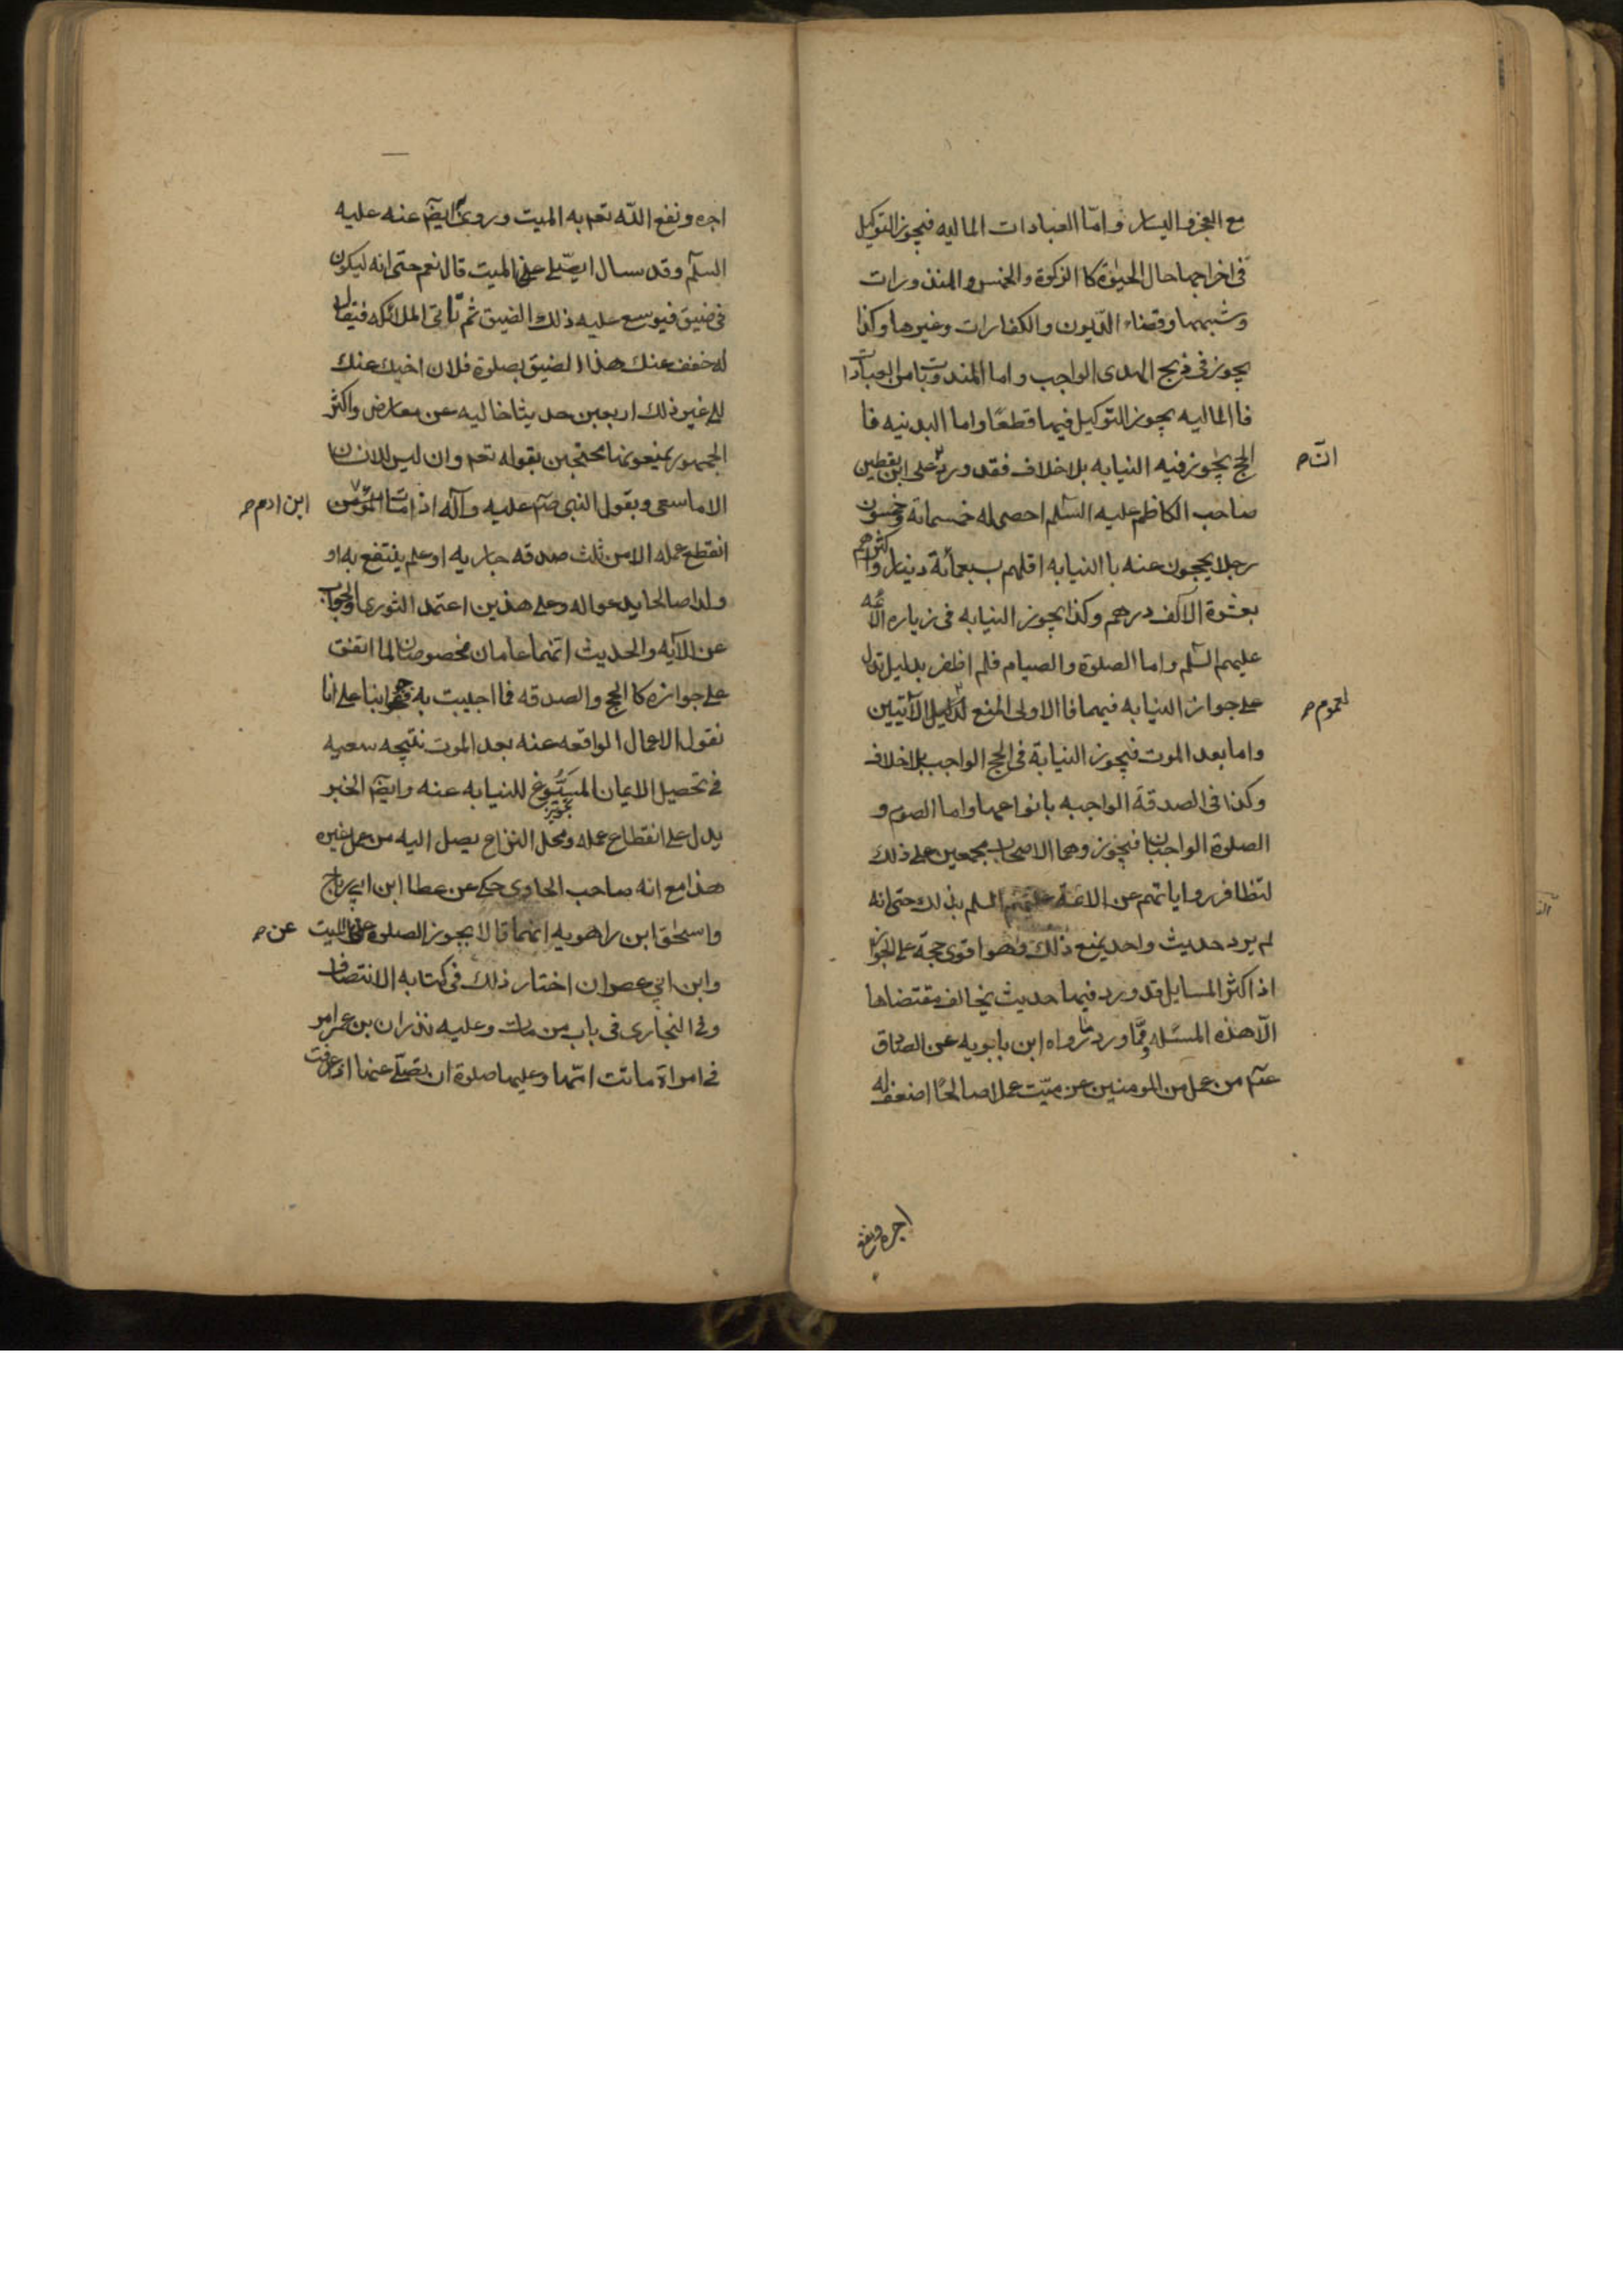 مع العجز و اليسار و امّا العبادات الماليه فيجوز التوكيل
فى اخراجها حال الحيوة كا الزكوة و الخمس و المنذورات
و شبهها و قضاء الديون و الكفارات و غيرها و كذا
يجوز فى ذبح الهدى الواجب و اما المندوبات من العبادات
فا الماليه يجوز التوكيل فيها قطعًا و اما البدنيه فا
الحج يجوز فيه النيابه بلا خلاف فقد ورد على ابن يقطين
انّ صح
صاحب الكاظم عليه السّلم احصى له خمسمائة و خمسون
رجلا يحجون عنه با النيابه اقلهم بسبعمائة دينار و اكثرهم
بعشرة الآف درهم و كذا يجوز النيابه فى زياره الائمه
عليهم السّلم و اما الصلوة و الصيام فلم اظفر بدليل تدل
على جواز النيابه فيهما فا الاولى المنع الآتيين
لعموم صح
و اما بعد الموت فيجوز النيابة فى الحج الواجب بلا خلاف
و كذا فى الصدقة الواجبه بانواعها و اما الصوم و
الصلوة الواجبتان فيجوز و هما الاصحاب مجمعين على ذلك
لتظافر رواياتهم عن الائمة عليهم السلم بذلك حتى انه
لم يرد حديث واحد يمنع ذلك و هو اقوى حجة على الجواز
اذ اكثر المسايل قد ورد فيها حديث يخالف مقتضاها
الّا هذه المسئله و ممّا ورد ما رواه ابن بابويه عن الصادق
عم من عمل من المومنين عن ميّت عملا صالحًا اضعف له
اجره و نفع
اجره و نفع اللّه تعه به الميت و روى ايضًا عنه عليه
السلّم و قد سال ايصلّى عن الميت قال نعم حتى انه ليكون
فى ضيق فيوسع عليه ذلك الضيق ثم تاتى الملائكه فيقال
له خفف عنك هذا الضيق بصلوة فلان اخيك عنك
الى غير ذلك اربعين حديثا خاليه عن معارض و اكثر
الجمهور يمنعونها محتجين بقوله تعه و ان ليس للانسان
الا ما سعى و بقول النبى صم عليه و آله اذا مات المؤمن
ابن ادم صح
انقطع عمله الا من ثلث صدقه جاريه او علم ينتفع به او
ولدا صالحا يدعو له و على هذين اعتمد الثورى و الجواب
عن الآيه و الحديث انهما عامان مخصوصان لما اتفق
على جوازه كا الحج و الصدقه فما اجيبت به فهو جوابنا على انا
نقول الاعمال الواقعه عنه بعد الموت نتيجه سعيه
فى تحصيل الايمان المسوغ للنيابه عنه و ايضًا الخبر
يدل على انقطاع عمله و محل النزاع يصل اليه من عمل غيره
هذا مع انه صاحب الحاوى حكى عن عطا ابن ابى رباح
و اسحق ابن راهويه انهما قالا يجوز الصلوة على الميت
عن صح
و ابن ابى عصوان اختار ذلك فى كتابه الانتصاف
و فى البخارى فى باب من مات و عليه نذر ان بن عمر امر
فى امراة ماتت امّها و عليها صلوة ان يصلّى عنها